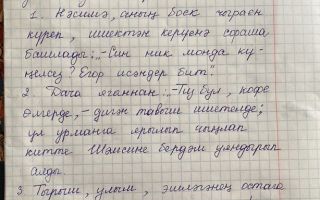 1. Нәсимә, аның боек чыраен
күреп, ишектән керүенә сораша
башлады: „-Син ник монда кү-
ңелсез? Егор исәндер бит."
2. Дача яганнан: -Пу бул, кофе
өлгерде, - дигән тавыш ишетелде;
ул урманга ярылып чыңлап
китте Шәмсине бердәм уяндырып
алды.
3 Тырыш, улым, эшләгәнең остага